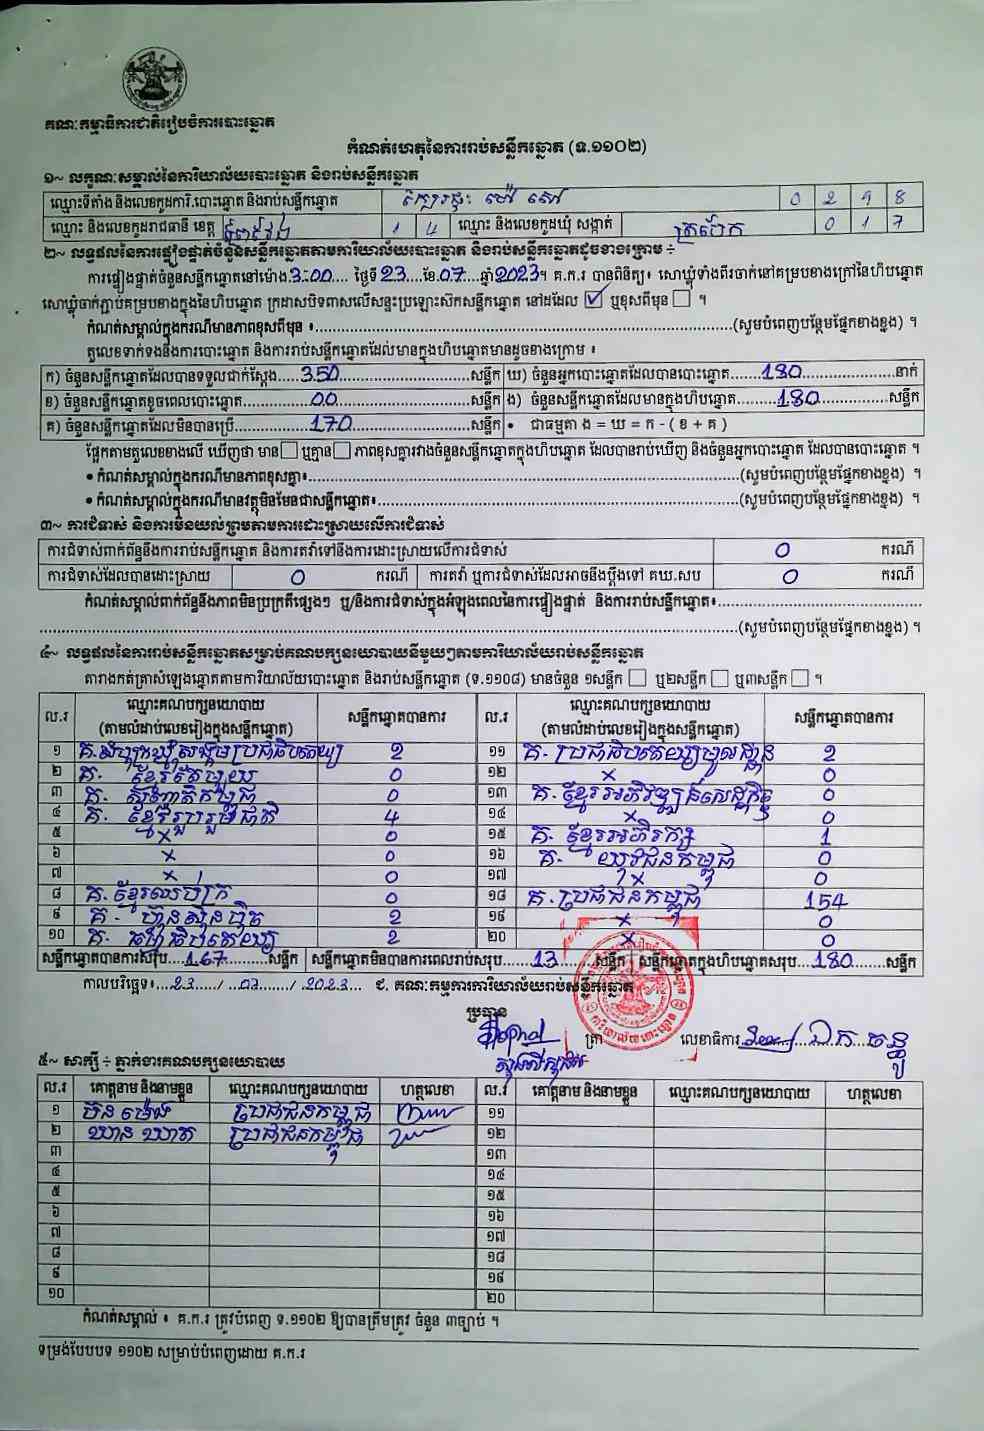 គណៈកម្មាធិការជាតិរៀបចំការបោះឆ្នោត
កំណត់ហេតុនៃការរាប់សន្លឹកឆ្នោត (ទ.១១០២)
១~ លក្ខណៈសម្គាល់នៃការិយាល័យបោះឆ្នោត និងរាប់សន្លឹកឆ្នោត
ឈ្មោះទីតាំង និងលេខកូដការិ.បោះឆ្នោត និងរាប់សន្លឹកឆ្នោត 0 2 9 8
ឈ្មោះ និងលេខកូដរាជធានី ខេត្ត ព្រៃវែង 1 4 ឈ្មោះ និងលេខកូដឃុំ សង្កាត់ ក្របៅ 0 1 7
២~ លទ្ធផលនៃការផ្ទៀងផ្ទាត់ចំនួនសន្លឹកឆ្នោតតាមការិយាល័យបោះឆ្នោត និងរាប់សន្លឹកឆ្នោតដូចខាងក្រោម ÷
ការផ្ទៀងផ្ទាត់ចំនួនសន្លឹកឆ្នោតនៅម៉ោង 3:00 ថ្ងៃទី 23 ខែ 07 ឆ្នាំ 2023 ។ គ.ក.រ បានពិនិត្យ៖ សោឃ្លុំទាំងពីរចាក់នៅគម្របខាងក្រៅនៃហិបឆ្នោត
សោឃ្លុំចាក់ភ្ជាប់គម្របខាងក្នុងនៃហិបឆ្នោត ក្រដាសបិទពាសលើសន្ទះប្រឡោះសិកសន្លឹកឆ្នោត នៅដដែល ☑ ឬខុសពីមុន ☐ ។
កំណត់សម្គាល់ក្នុងករណីមានភាពខុសពីមុន ៖ (សូមបំពេញបន្ថែមផ្នែកខាងខ្នង) ។
តួលេខទាក់ទងនឹងការបោះឆ្នោត និងការរាប់សន្លឹកឆ្នោតដែលមានក្នុងហិបឆ្នោតមានដូចខាងក្រោម ៖
ក) ចំនួនសន្លឹកឆ្នោតដែលបានទទួលជាក់ស្តែង 350 សន្លឹក ឃ) ចំនួនអ្នកបោះឆ្នោតដែលបានបោះឆ្នោត 180 នាក់
ខ) ចំនួនសន្លឹកឆ្នោតខូចពេលបោះឆ្នោត 00 សន្លឹក ង) ចំនួនសន្លឹកឆ្នោតដែលមានក្នុងហិបឆ្នោត 180 សន្លឹក
គ) ចំនួនសន្លឹកឆ្នោតដែលមិនបានប្រើ 170 សន្លឹក • ជាធម្មតា ង = ឃ = ក - ( ខ + គ )
ផ្អែកតាមតួលេខខាងលើ ឃើញថា មាន ☐ ឬគ្មាន ☐ ភាពខុសគ្នារវាងចំនួនសន្លឹកឆ្នោតក្នុងហិបឆ្នោត ដែលបានរាប់ឃើញ និងចំនួនអ្នកបោះឆ្នោត ដែលបានបោះឆ្នោត ។
• កំណត់សម្គាល់ក្នុងករណីមានភាពខុសគ្នា៖ (សូមបំពេញបន្ថែមផ្នែកខាងខ្នង) ។
• កំណត់សម្គាល់ក្នុងករណីមានវត្ថុមិនមែនជាសន្លឹកឆ្នោត៖ (សូមបំពេញបន្ថែមផ្នែកខាងខ្នង) ។
៣~ ការជំទាស់ និងការមិនយល់ព្រមតាមការដោះស្រាយលើការជំទាស់
ការជំទាស់ពាក់ព័ន្ធនឹងការរាប់សន្លឹកឆ្នោត និងការតវ៉ាទៅនឹងការដោះស្រាយលើការជំទាស់ 0 ករណី
ការជំទាស់ដែលបានដោះស្រាយ 0 ករណី ការតវ៉ា ឬការជំទាស់ដែលអាចនឹងប្តឹងទៅ គឃ.សប 0 ករណី
កំណត់សម្គាល់ពាក់ព័ន្ធនឹងភាពមិនប្រក្រតីផ្សេងៗ ឬ/និងការជំទាស់ក្នុងអំឡុងពេលនៃការផ្ទៀងផ្ទាត់ និងការរាប់សន្លឹកឆ្នោត៖
(សូមបំពេញបន្ថែមផ្នែកខាងខ្នង) ។
៤~ លទ្ធផលនៃការរាប់សន្លឹកឆ្នោតសម្រាប់គណបក្សនយោបាយនីមួយៗតាមការិយាល័យរាប់សន្លឹកឆ្នោត
តារាងកត់ត្រាសំឡេងឆ្នោតតាមការិយាល័យបោះឆ្នោត និងរាប់សន្លឹកឆ្នោត (ទ.១១០៨) មានចំនួន ១សន្លឹក ☐ ឬ២សន្លឹក ☐ ឬ៣សន្លឹក ☐ ។
ល.រ ឈ្មោះគណបក្សនយោបាយ (តាមលំដាប់លេខរៀងក្នុងសន្លឹកឆ្នោត) សន្លឹកឆ្នោតបានការ ល.រ ឈ្មោះគណបក្សនយោបាយ (តាមលំដាប់លេខរៀងក្នុងសន្លឹកឆ្នោត) សន្លឹកឆ្នោតបានការ
១ គ.សំបុកឃ្មុំសង្គមប្រជាធិបតេយ្យ 2 ១១ គ.ប្រជាធិបតេយ្យមូលដ្ឋាន 2
២ គ. ខ្មែរតែមួយ 0 ១២ × 0
៣ គ. ស្ថាន 0 ១៣ គ.ខ្មែរអភិវឌ្ឍន៍សេដ្ឋកិច្ច 0
៤ គ. ខ្មែររួបរួមជាតិ 4 ១៤ × 0
៥ × 0 ១៥ គ. ខ្មែរអភិរក្ស 1
៦ × 0 ១៦ គ. យុវជនកម្ពុជា 0
៧ × 0 ១៧ × 0
៨ គ.ខ្មែរឈប់ក្រ 0 ១៨ គ.ប្រជាជនកម្ពុជា 154
៩ គ. ហ៊្វុនស៊ិនប៉ិច 2 ១៩ × 0
១០ គ. ធម្មាធិបតេយ្យ 2 ២០ × 0
សន្លឹកឆ្នោតបានការសរុប 167 សន្លឹក សន្លឹកឆ្នោតមិនបានការពេលរាប់សរុប 13 សន្លឹក សន្លឹកឆ្នោតក្នុងហិបឆ្នោតសរុប 180 សន្លឹក
កាលបរិច្ឆេទ៖ 23 / 07 / 2023 ជ. គណៈកម្មការការិយាល័យរាប់សន្លឹកឆ្នោត
ប្រធាន
ត្រា លេខាធិការ ឯក ចន្ធូ
៥~ សាក្សី ÷ ភ្នាក់ងារគណបក្សនយោបាយ
ល.រ គោត្តនាម និងនាមខ្លួន ឈ្មោះគណបក្សនយោបាយ ហត្ថលេខា ល.រ គោត្តនាម និងនាមខ្លួន ឈ្មោះគណបក្សនយោបាយ ហត្ថលេខា
១ ប៊ន ម៉េង ប្រជាជនកម្ពុជា ១១
២ ឃាន ឃាត ប្រជាជនកម្ពុជា ១២
៣ ១៣
៤ ១៤
៥ ១៥
៦ ១៦
៧ ១៧
៨ ១៨
៩ ១៩
១០ ២០
កំណត់សម្គាល់ ៖ គ.ក.រ ត្រូវបំពេញ ទ.១១០២ ឱ្យបានត្រឹមត្រូវ ចំនួន ៣ច្បាប់ ។
ទម្រង់បែបបទ ១១០២ សម្រាប់បំពេញដោយ គ.ក.រ